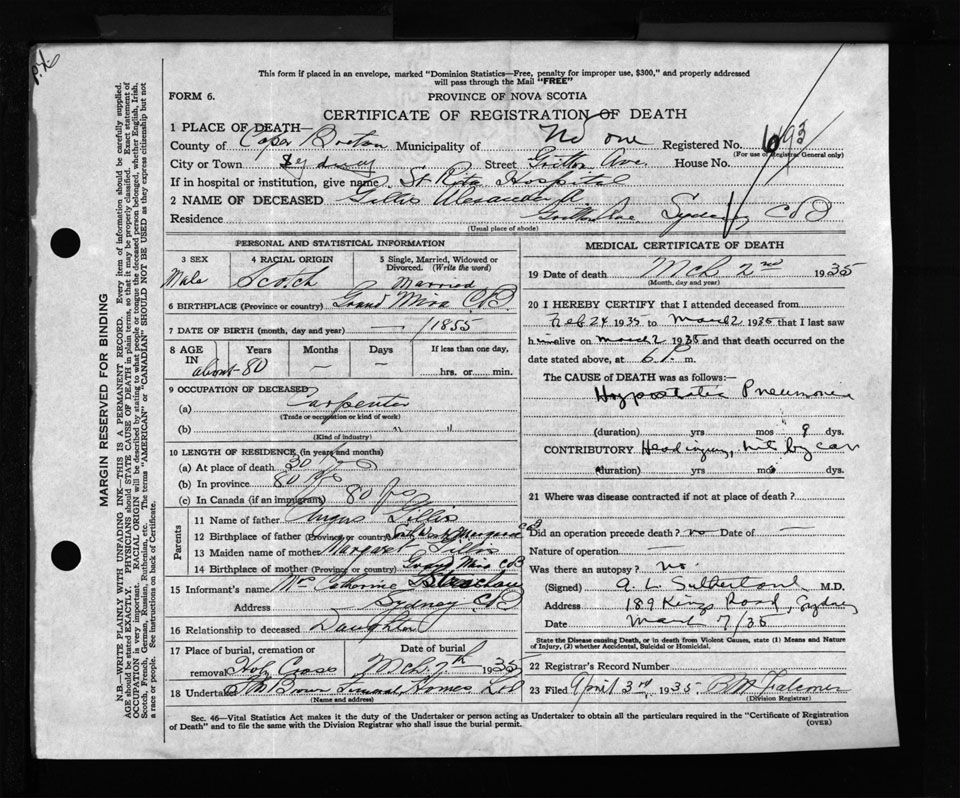 This form if placed in an envelope, marked "Dominion Statistics—Free, penalty for improper use, $300," and properly addressed
will pass through the Mail "FREE"
FORM 6.
PROVINCE OF NOVA SCOTIA
CERTIFICATE OF REGISTRATION OF DEATH
1 PLACE OF DEATH—
County of Cape Breton Municipality of No one Registered No.
(For use of Registrar General only)
City or Town Sydney Street Ave. House No.
If in hospital or institution, give name St Rita Hospital
2 NAME OF DECEASED Gillis Alexander
Residence Sydney CB
(Usual place of abode)
PERSONAL AND STATISTICAL INFORMATION
3 SEX Male
4 RACIAL ORIGIN Scotch
5 Single, Married, Widowed or Divorced. (Write the word) Married
6 BIRTHPLACE (Province or country) Grand Mira C.B.
7 DATE OF BIRTH (month, day and year) — 1855
8 AGE IN Years Months Days If less than one day,
about 80 — — hrs. or min.
9 OCCUPATION OF DECEASED
(a) Carpenter
(Trade or occupation or kind of work)
(b) " "
(Kind of industry)
10 LENGTH OF RESIDENCE (in years and months)
(a) At place of death 30 yrs
(b) In province 80 yrs
(c) In Canada (if an immigrant) 80 yrs
Parents
11 Name of father Angus Gillis
12 Birthplace of father (Province or country) Margaree CB
13 Maiden name of mother Margaret Gillis
14 Birthplace of mother (Province or country) Grand Mira CB
15 Informant's name Mrs Catherine
Address Sydney CB
16 Relationship to deceased Daughter
17 Place of burial, cremation or removal Holy Cross
Date of burial Mch. 7th 1935
18 Undertaker Funeral Homes Ltd
(Name and address)
MEDICAL CERTIFICATE OF DEATH
19 Date of death Mch 2nd 1935
(Month, day and year)
20 I HEREBY CERTIFY that I attended deceased from
Feb 24 1935 to March 2 1935 that I last saw
him alive on March 2 1935 and that death occurred on the
date stated above, at 6 P. m.
The CAUSE of DEATH was as follows:—
Hypostatic Pneumonia
(duration) yrs mos 9 dys.
CONTRIBUTORY Head injury, hit by car
(duration) yrs mos dys.
21 Where was disease contracted if not at place of death?
Did an operation precede death? no Date of —
Nature of operation —
Was there an autopsy? no.
(Signed) A. L. Sutherland M.D.
Address 189 Kings Road, Sydney
Date March 7/35
State the Disease causing Death, or in death from Violent Causes, state (1) Means and Nature of Injury, (2) whether Accidental, Suicidal or Homicidal.
22 Registrar's Record Number
23 Filed April 3rd, 1935
(Division Registrar)
Sec. 46—Vital Statistics Act makes it the duty of the Undertaker or person acting as Undertaker to obtain all the particulars required in the "Certificate of Registration
of Death" and to file the same with the Division Registrar who shall issue the burial permit.
(OVER)
MARGIN RESERVED FOR BINDING
N.B.—WRITE PLAINLY WITH UNFADING INK—THIS IS A PERMANENT RECORD. Every item of information should be carefully supplied.
AGE should be stated EXACTLY. PHYSICIANS should STATE CAUSE OF DEATH in plain terms, so that it may be properly classified. Exact statement of
OCCUPATION is very important. RACIAL ORIGIN will be described by stating to what people or tongue the deceased person belonged, whether English, Irish,
Scotch, French, German, Russian, Ruthenian, etc. The terms "AMERICAN" or "CANADIAN" SHOULD NOT BE USED as they express citizenship but not
a race or people. See instructions on back of Certificate.